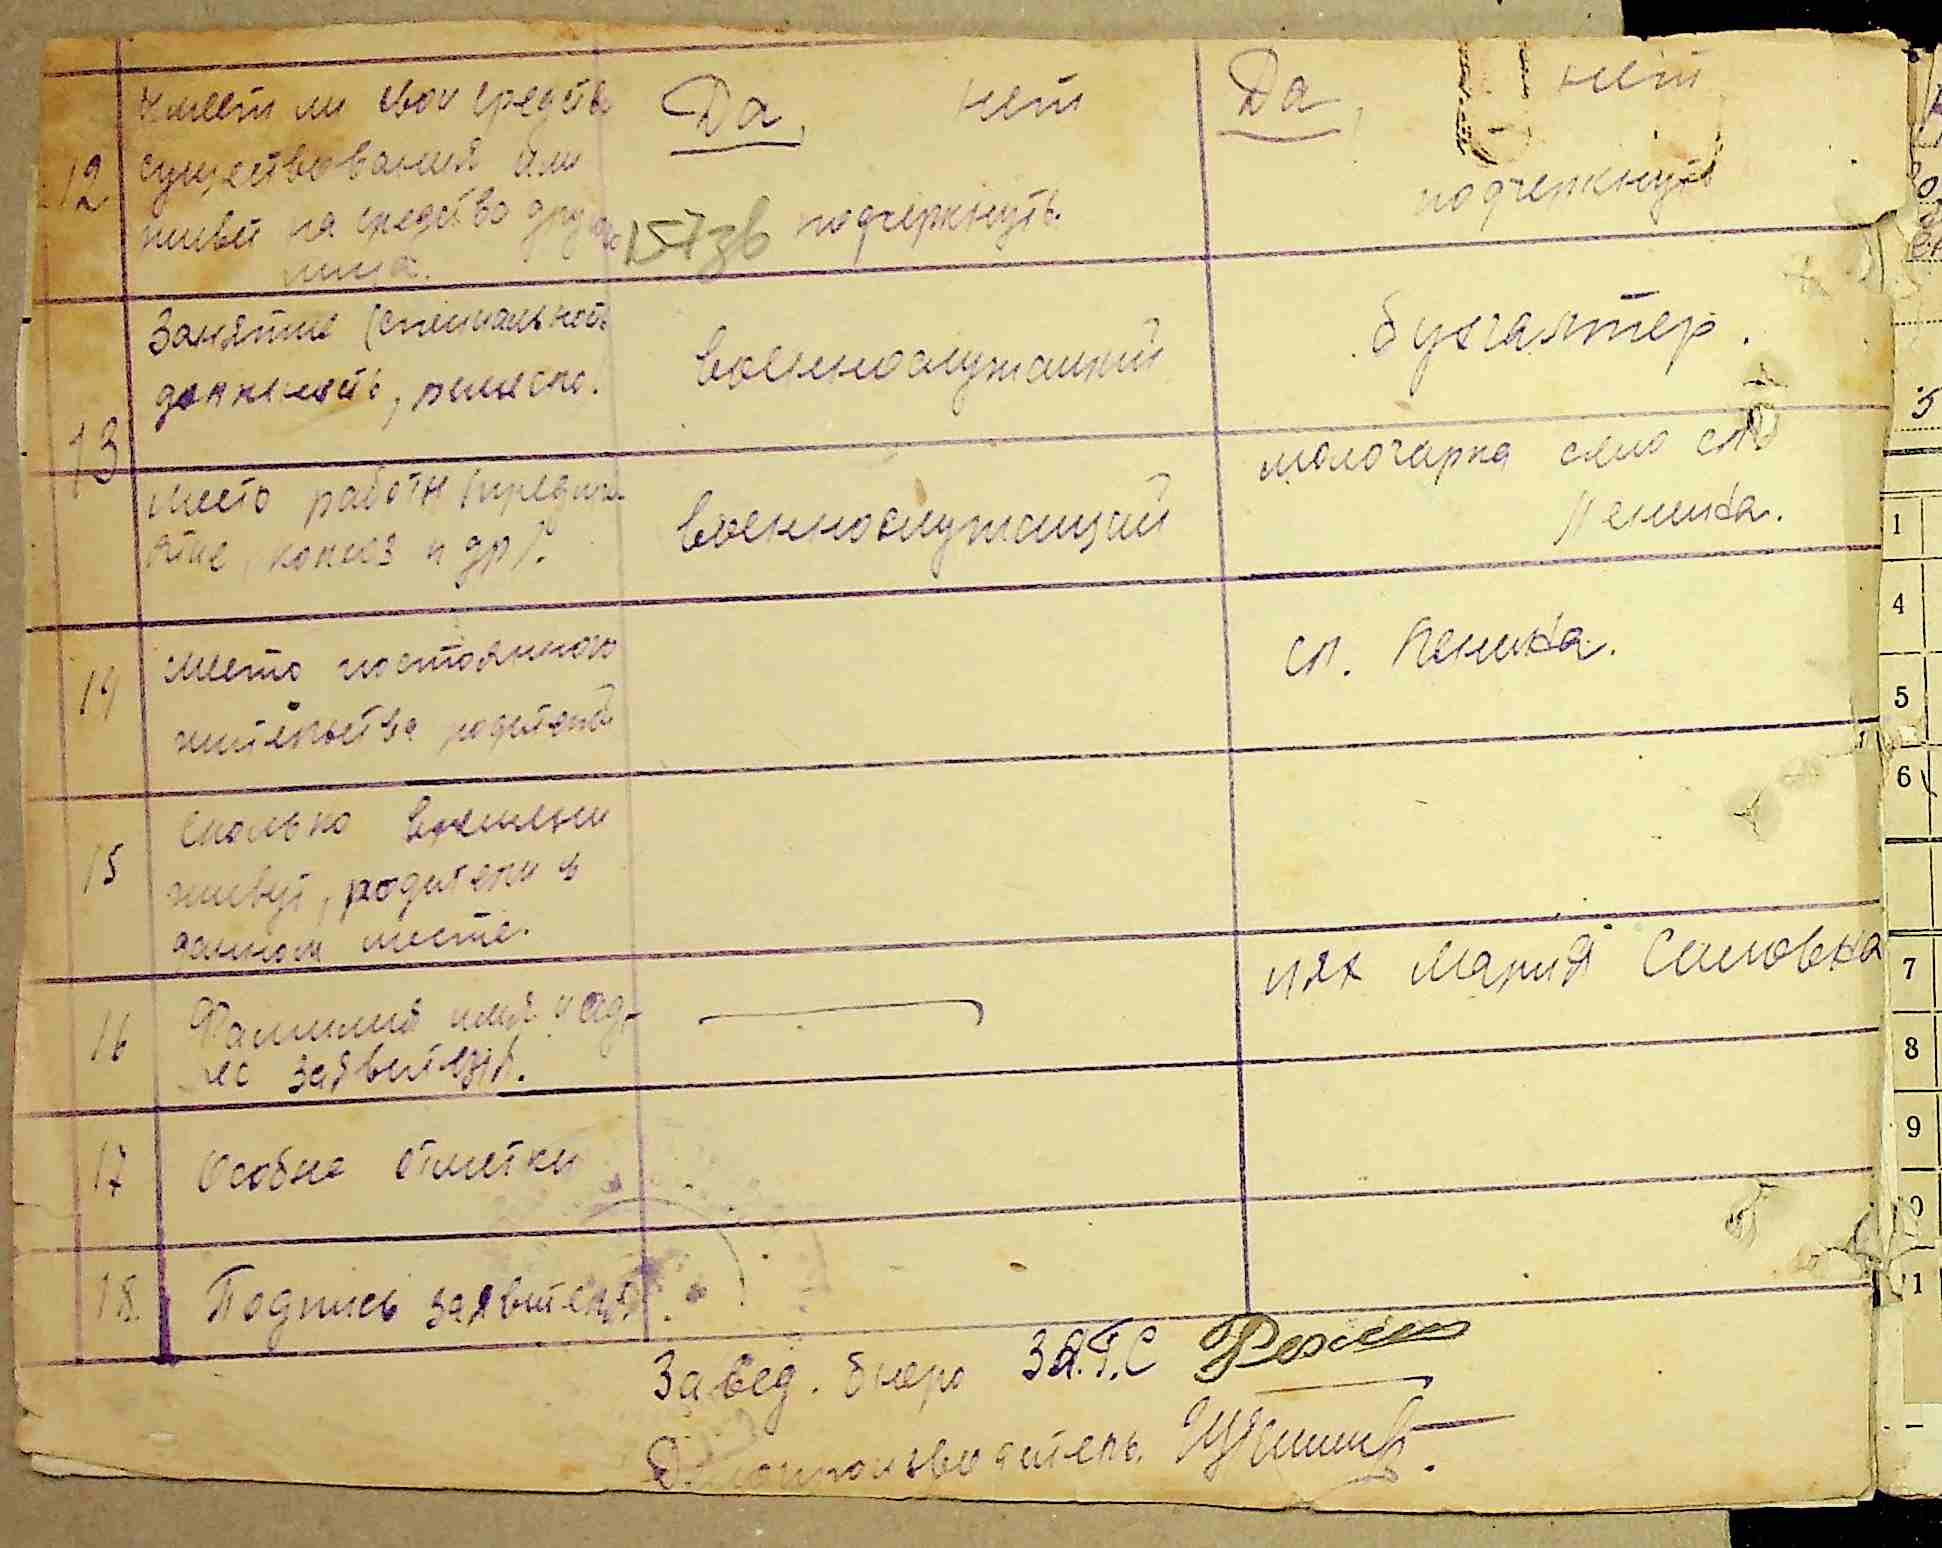 12
Имеет ли свои средства
существования или
живет на средства других
лица.
Да, нет
подчеркнуть
157зв
Да, нет
подчеркнуть
13
Занятие (специальность
должность, ремесло.
военнослужащий
бухгалтер.
место работы (предпри-
ятие, колхоз и др).
военнослужащий
молочарка село сл
Пениха.
14
место постоянного
жительства родителей
сл. Пениха.
15
Сколько времени
живут, родители в
данном месте.
16
Фамилия имя и ад-
рес заявителя.
Мария
17
Особые отметки
18.
Подпись заявителя.
Завед. бюро ЗАГС
Делопроизводитель
1
4
5
6
7
8
9